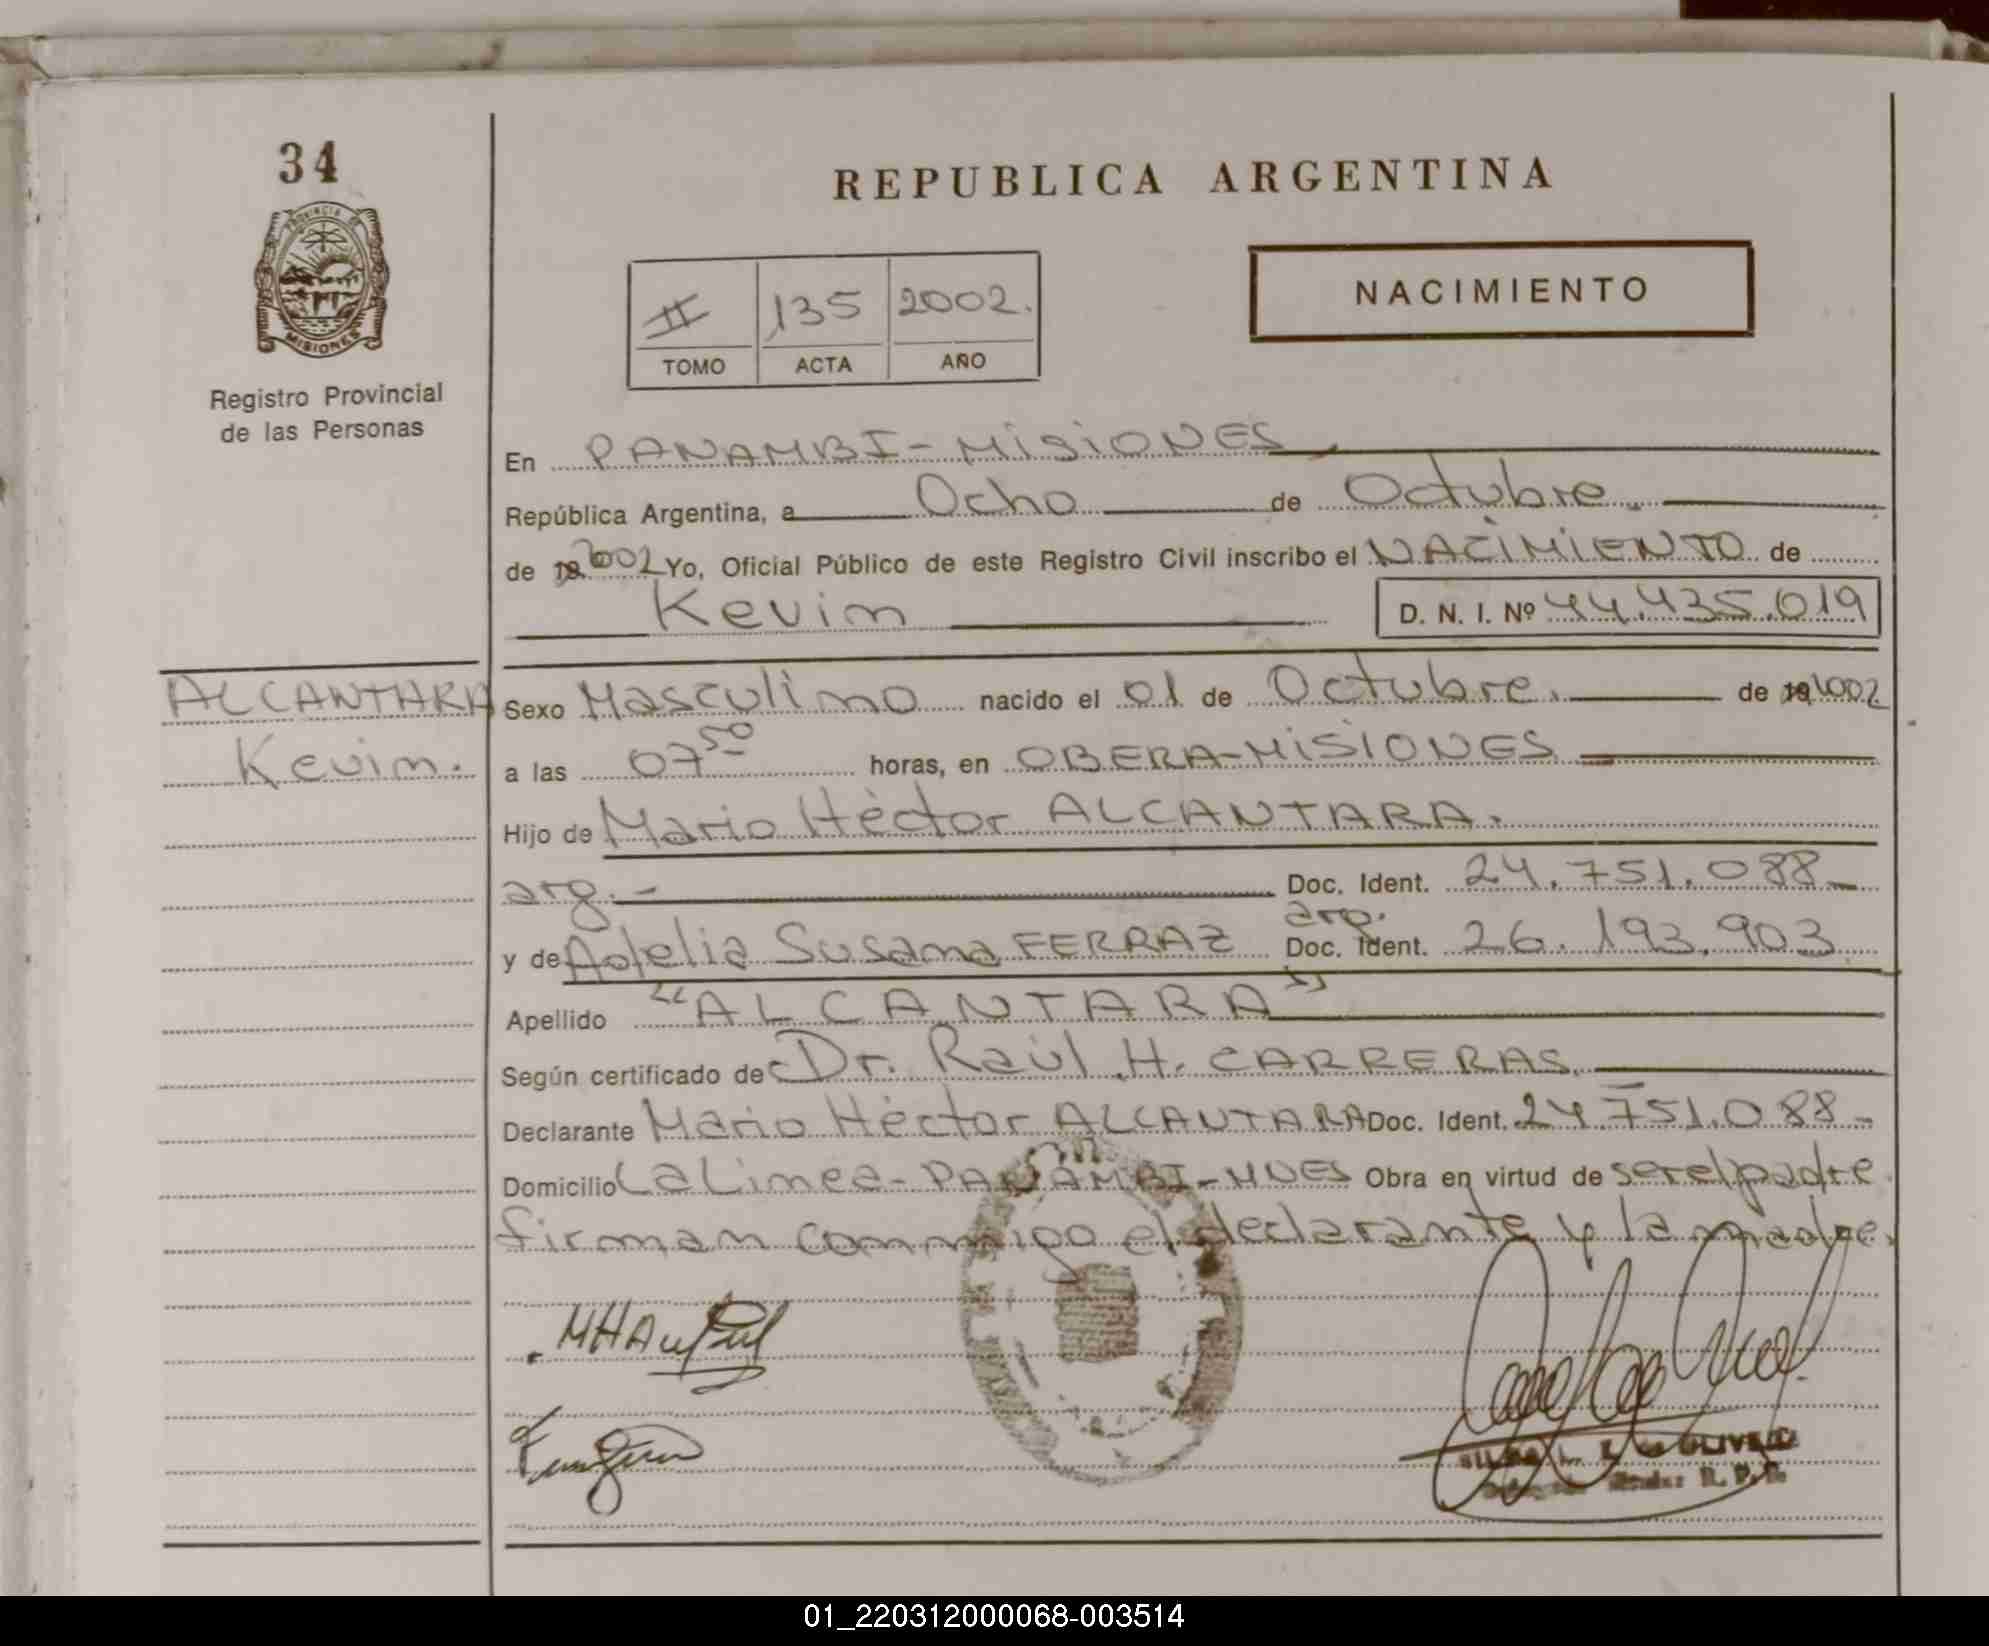 34
REPUBLICA ARGENTINA
PROVINCIA DE
MISIONES
II 135 2002.
TOMO ACTA AÑO
NACIMIENTO
Registro Provincial
de las Personas
En PANAMBI-MISIONES
República Argentina, a Ocho de Octubre.
de 192002 Yo, Oficial Público de este Registro Civil inscribo el NACIMIENTO de
Kevim D. N. I. Nº 44.435.019
ALCANTARA
Kevim.
Sexo Masculino nacido el 01 de Octubre. de 192002
a las 07 50 horas, en OBERA-MISIONES
Hijo de Mario Héctor ALCANTARA.
arg.- Doc. Ident. 24.751.088-
y de Adelia Susana FERRAZ arg. Doc. Ident. 26.193.903
Apellido "ALCANTARA"
Según certificado de Dr. Raúl H. CARRERAS.
Declarante Mario Héctor ALCANTARA Doc. Ident. 24.751.088-
Domicilio La Linea-PANAMBI-MNES Obra en virtud de ser el padre
firman conmigo el declarante y la madre.
R. P. P.
01_220312000068-003514